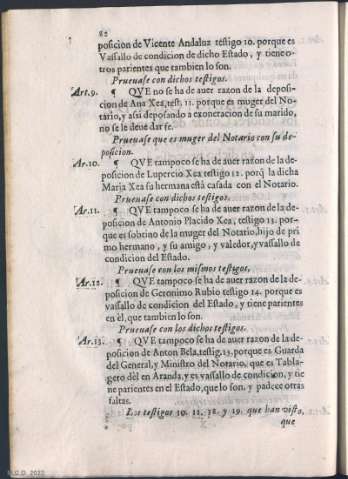 82
posicion de Vicente Andaluz testigo 10. porque es
Vassallo de condicion de dicho Estado, y tiene o-
tros parientes que tambien lo son.
Prueuase con dichos testigos.
Art.9. ¶ QVE no se ha de auer razon de la deposi-
cion de Ana Xea, test. 11. porque es muger del No-
tario, y assi deposando a exoneracion de su marido,
no se le deue dar fe.
Prueuase que es muger del Notario con su de-
posicion.
Ar.10. ¶ QVE tampoco se ha de auer razon de la de-
posicion de Lupercio Xea testigo 12. porq̃ la dicha
Maria Xea su hermana està casada con el Notario.
Prueuase con dichos testigos.
Ar.11. ¶ QVE tampoco se ha de auer razon de la de-
posicion de Antonio Placido Xea, testigo 13. por-
que es sobrino de la muger del Notario, hijo de pri
mo hermano, y su amigo, y valedor, y vassallo de
condicion del Estado.
Prueuase con los mismos testigos,
Ar.12. ¶ QVE tampoco se ha de auer razon de la de-
posicion de Geronimo Rubio testigo 14. porque es
vassallo de condicion del Estado, y tiene parientes
en èl, que tambien lo son.
Prueuase con los dichos testigos.
Ar.13. ¶ QVE tampoco se ha de auer razon de la de-
posicion de Anton Bela, testig. 15. porque es Guarda
del General, y Ministro del Notario, que es Tabla-
gero dèl en Aranda, y es vassallo de condicion, y tie
ne parientes en el Estado, que lo son, y padece otras
faltas.
Los testigos 10. 11. 38. y 19. que han visto,
que